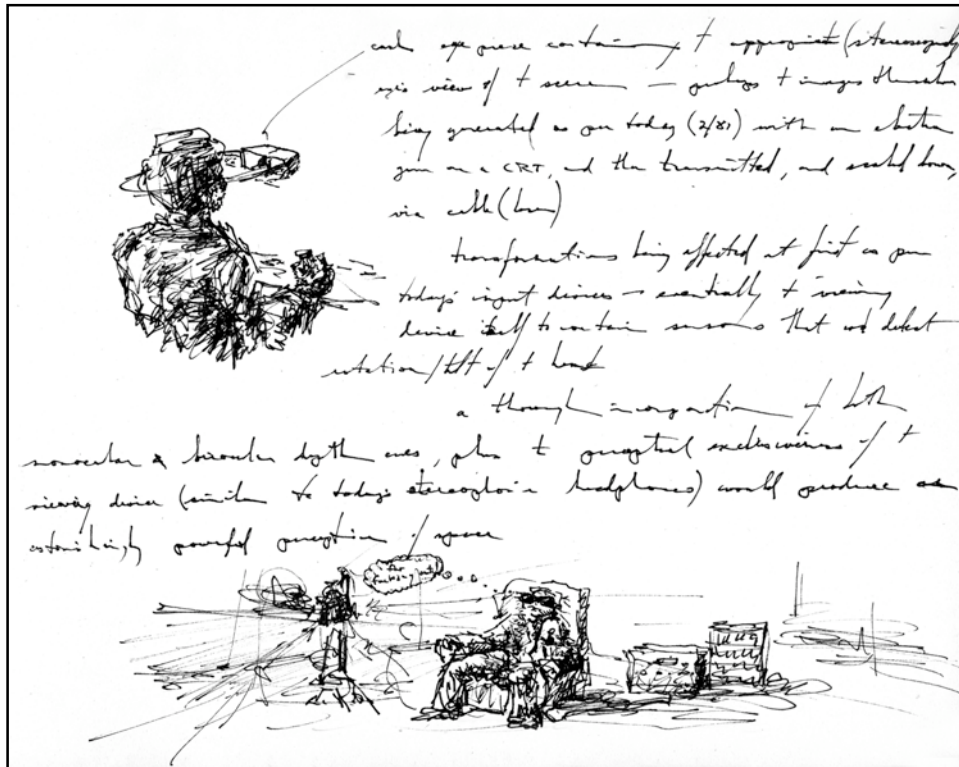 each eye piece containing t appropriate (stereoscopically
axis view of t scene — perhaps t images themselves
being generated as per today (2/81) with an electron
gun on a CRT, and then transmitted, and scaled down,
via cable (laser)
transformations being effected at first as per
today's input devices — eventually t viewing
device itself to contain sensors that wd detect
rotation/tilt of t head
a thorough incorporation of both
monocular & binocular depth cues, plus t perceptual exclusiveness of t
viewing device (similar to today's stereophonic headphones) would produce an
astonishingly powerful perception of space